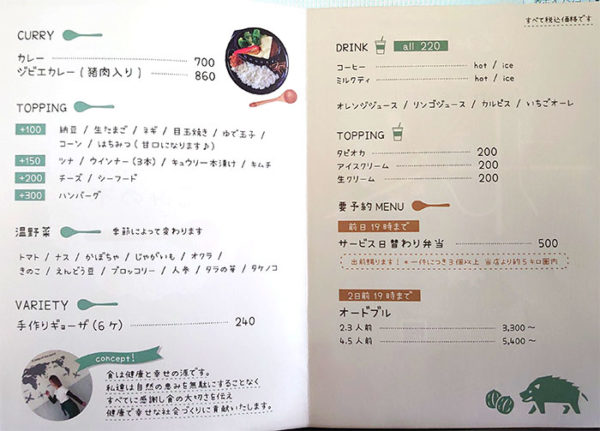 CURRY
カレー 700
ジビエカレー(猪肉入り) 860
TOPPING
+100 納豆 / 生たまご / ネギ / 目玉焼き / ゆで玉子 /
コーン / はちみつ(甘口になります♪)
+150 ツナ / ウインナー(3本) / キュウリ一本漬け / キムチ
+200 チーズ / シーフード
+300 ハンバーグ
温野菜 季節によって変わります
トマト / ナス / かぼちゃ / じゃがいも / オクラ /
きのこ / えんどう豆 / ブロッコリー / 人参 / タラの芽 / タケノコ
VARIETY
手作りギョーザ(6ケ) 240
concept!
食は健康と幸せの源です。
私達は自然の恵みを無駄にすることなく
すべてに感謝し食の大切さを伝え
健康で幸せな社会づくりに貢献いたします。
すべて税込価格です
DRINK all 220
コーヒー hot / ice
ミルクティ hot / ice
オレンジジュース / リンゴジュース / カルピス / いちごオーレ
TOPPING
タピオカ 200
アイスクリーム 200
生クリーム 200
要予約MENU
前日19時まで
サービス日替わり弁当 500
出前賜ります! *一件につき3個以上 当店より約5キロ圏内
2日前19時まで
オードブル
2.3人前 3,300〜
4.5人前 5,400〜